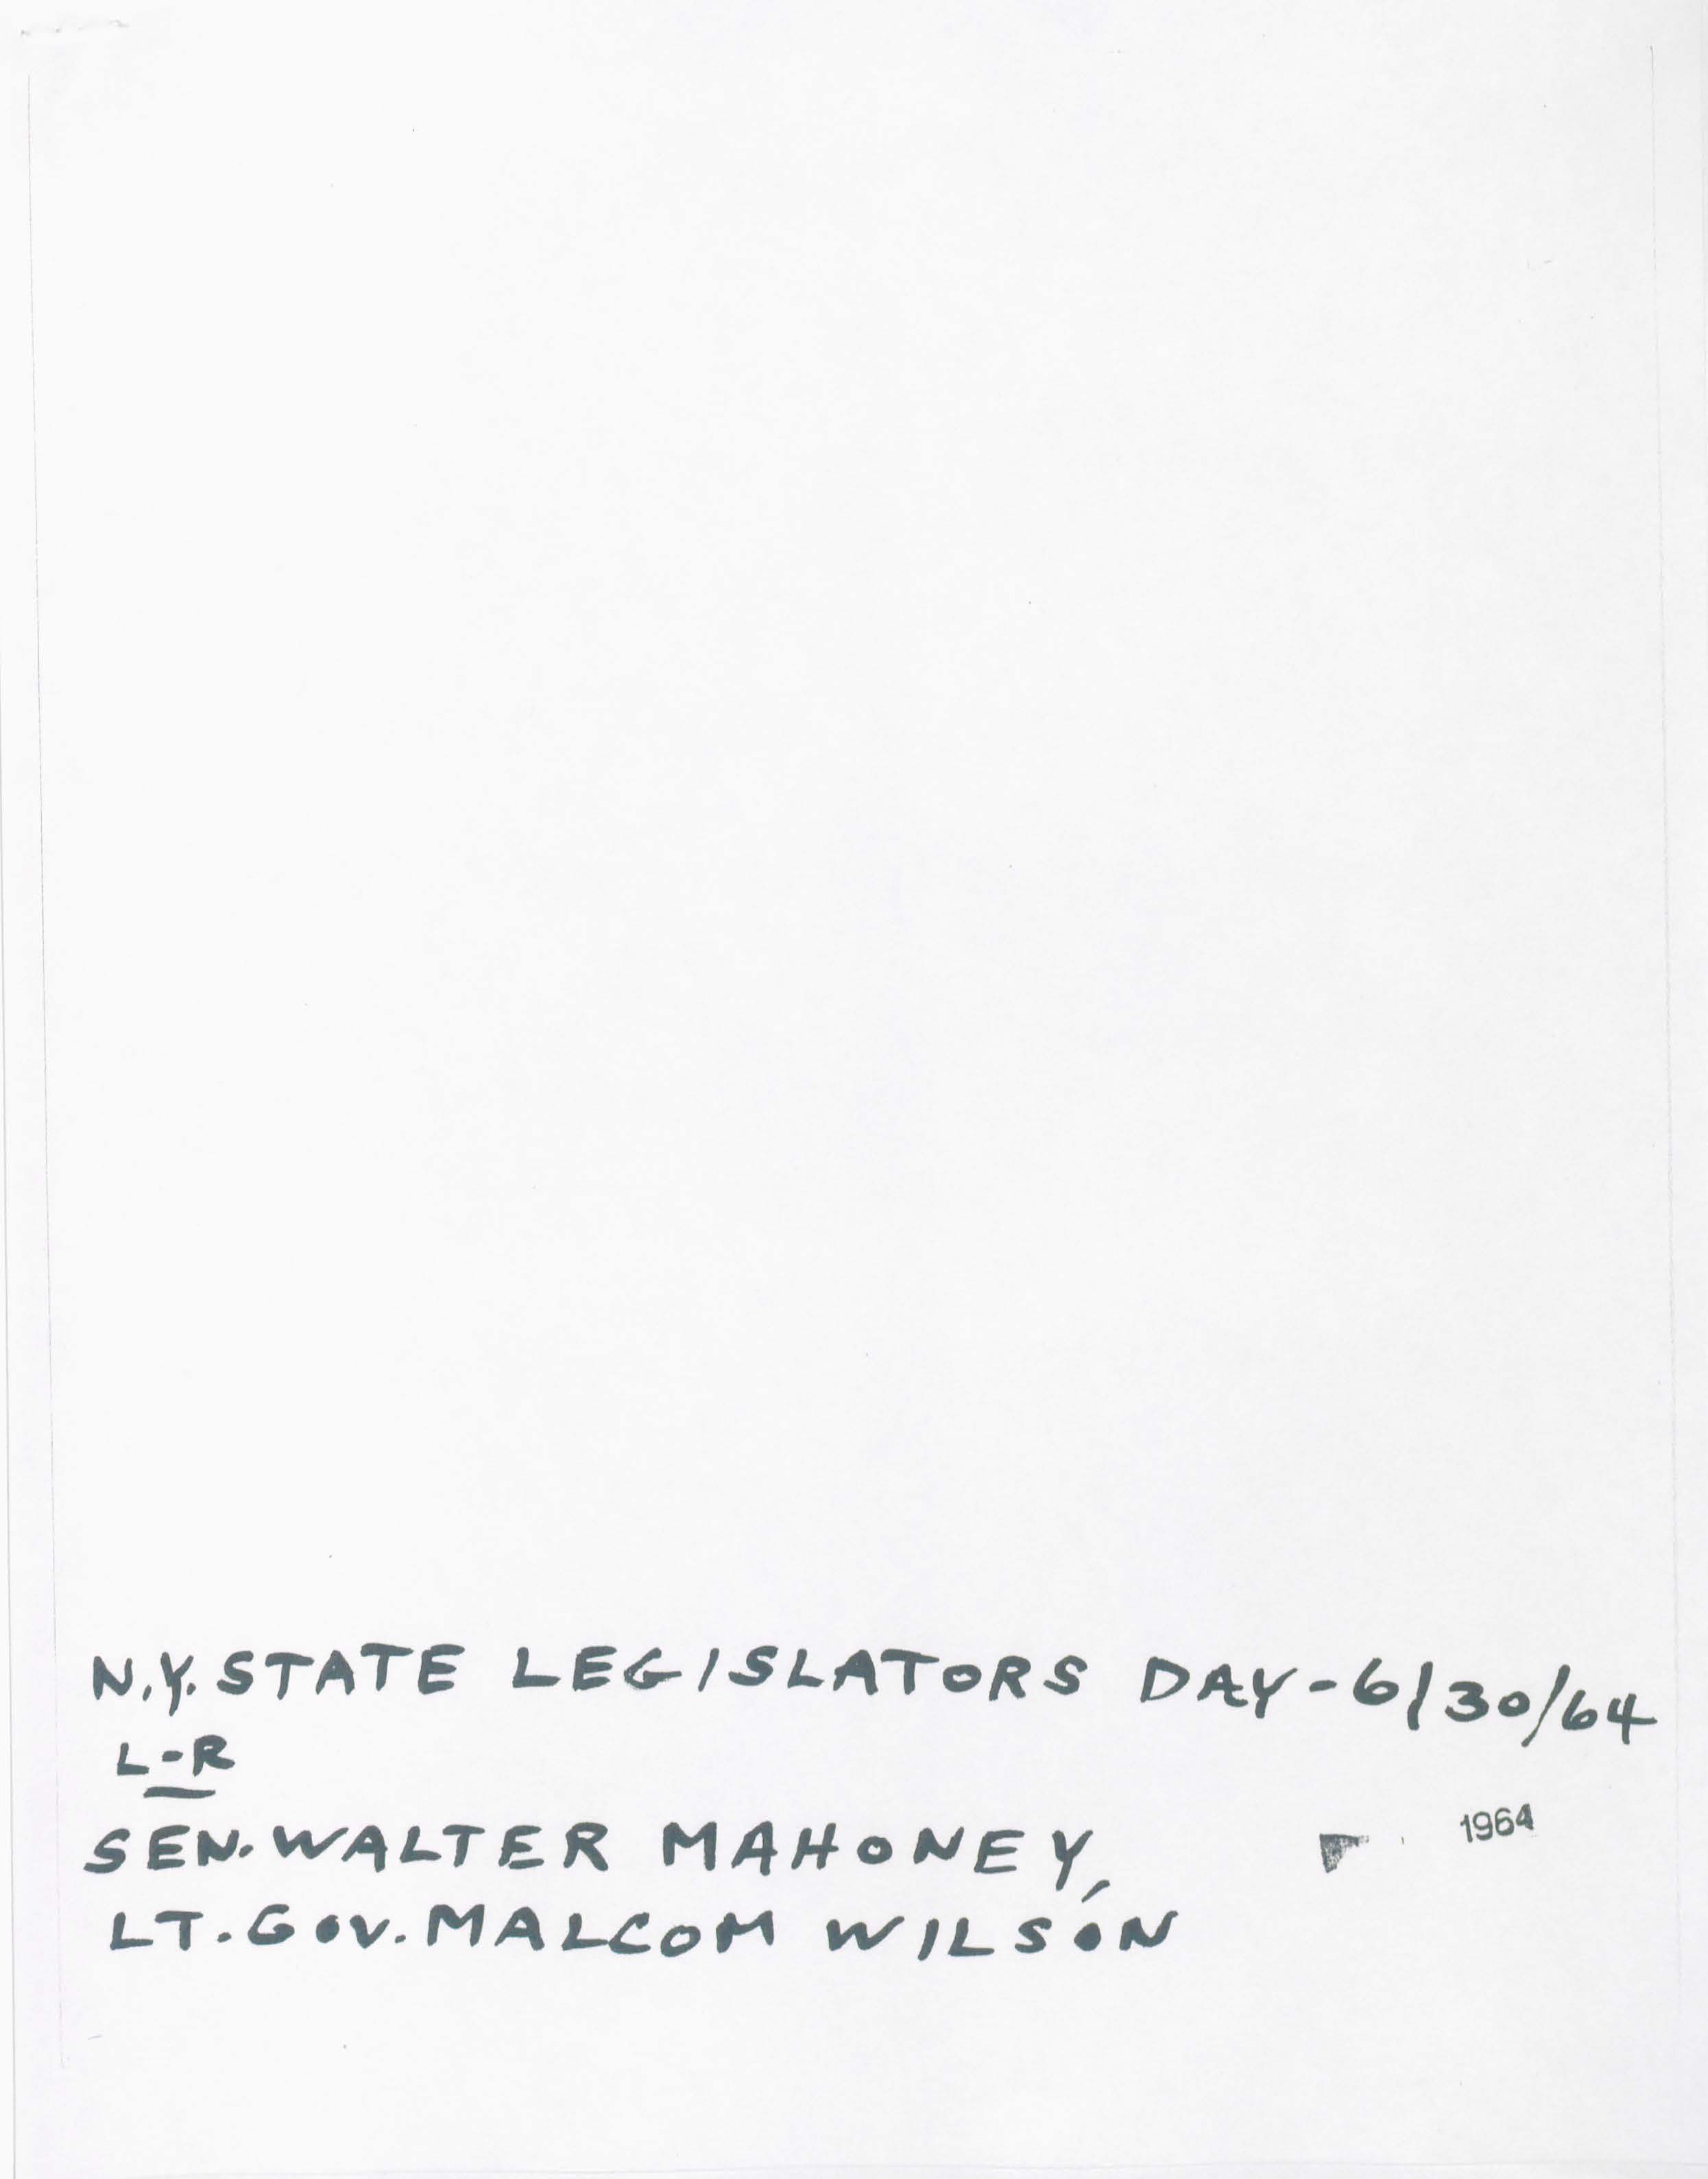 N.Y. STATE LEGISLATORS DAY - 6/30/64
L-R
SEN. WALTER MAHONEY,
1964
LT. GOV. MALCOM WILSON